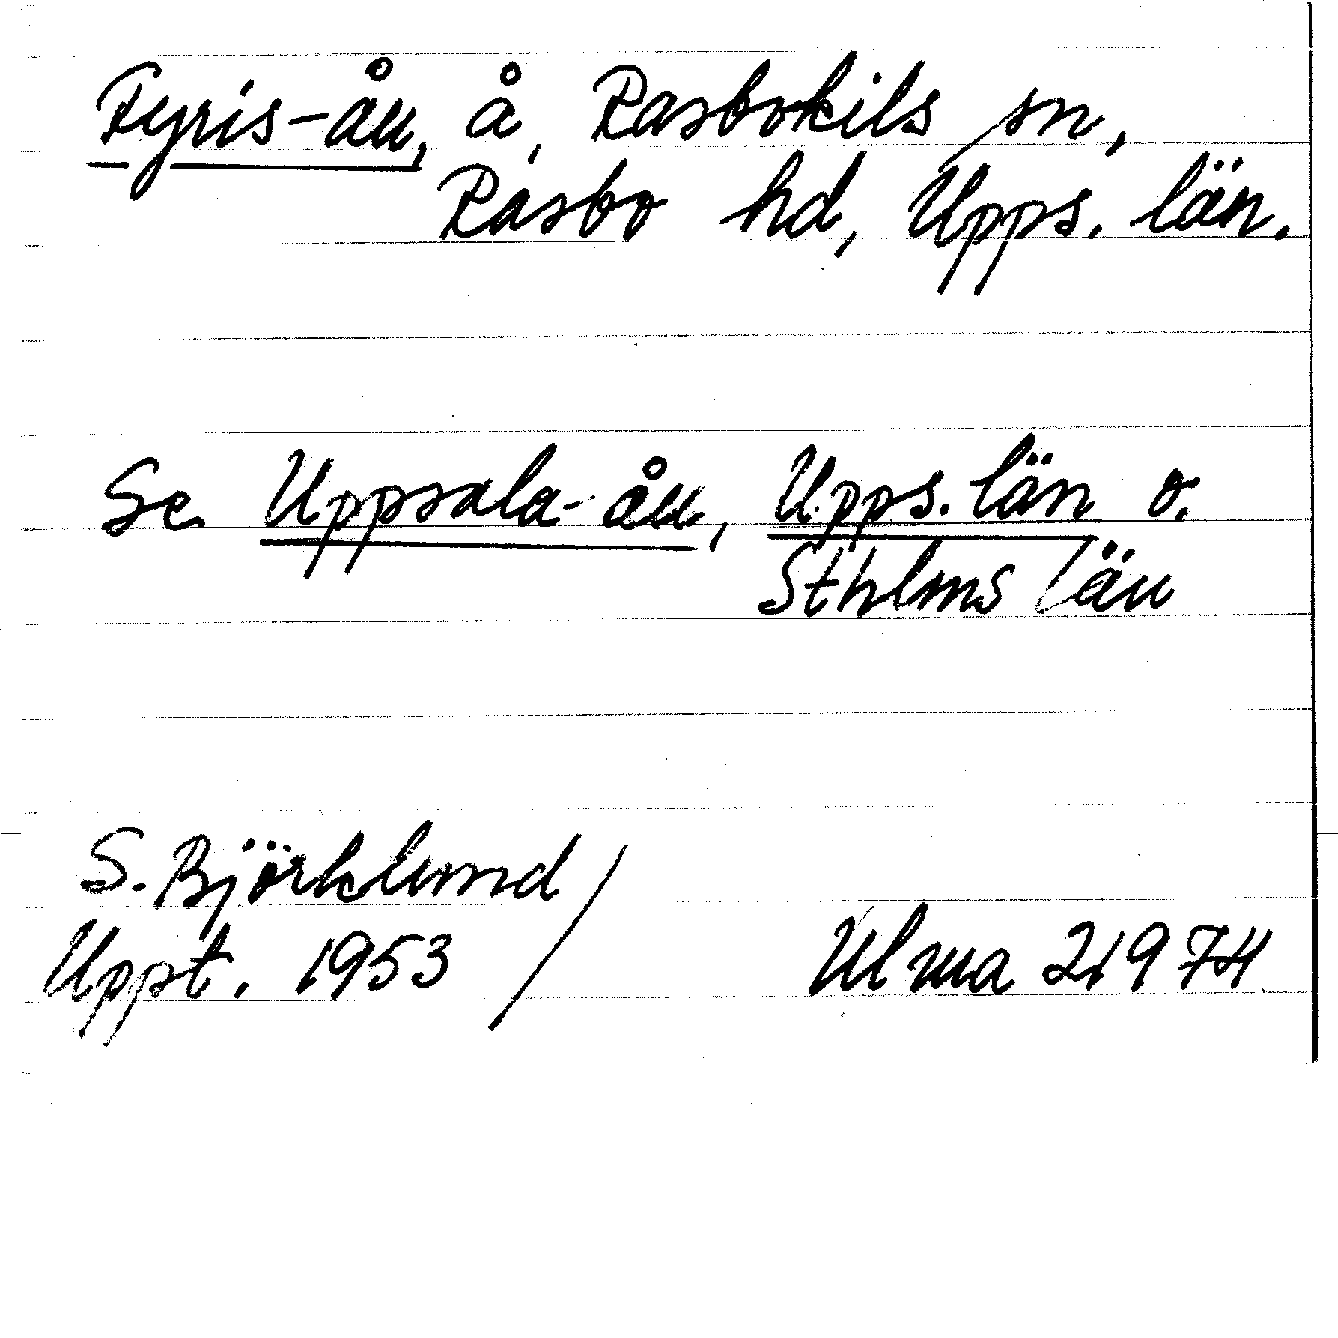 Fyris-ån, å, Rasbokils sn,
Rasbo hd, Upps. län.
Se Uppsala-ån, Upps. län o.
Sthlms län
S. Björklund /
Uppt. 1953 / Ulma 21974